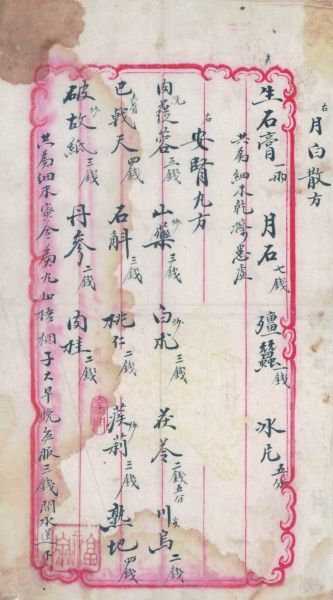 右月白散方
生石膏一兩 月石七錢 殭蠶一錢 冰片五分
共為細末乾擦患處
右安腎丸方
肉蓯蓉洗五錢 山藥炒三錢 白朮炒三錢 茯苓二錢五分 川烏二錢
巴戟天四錢 石斛三錢 桃仁二錢 蒺莉炒三錢 熟地四錢
破故紙炒三錢 丹參二錢 肉桂二錢
共為細末蜜合為丸如梧桐子大早晚每服三錢開水送下